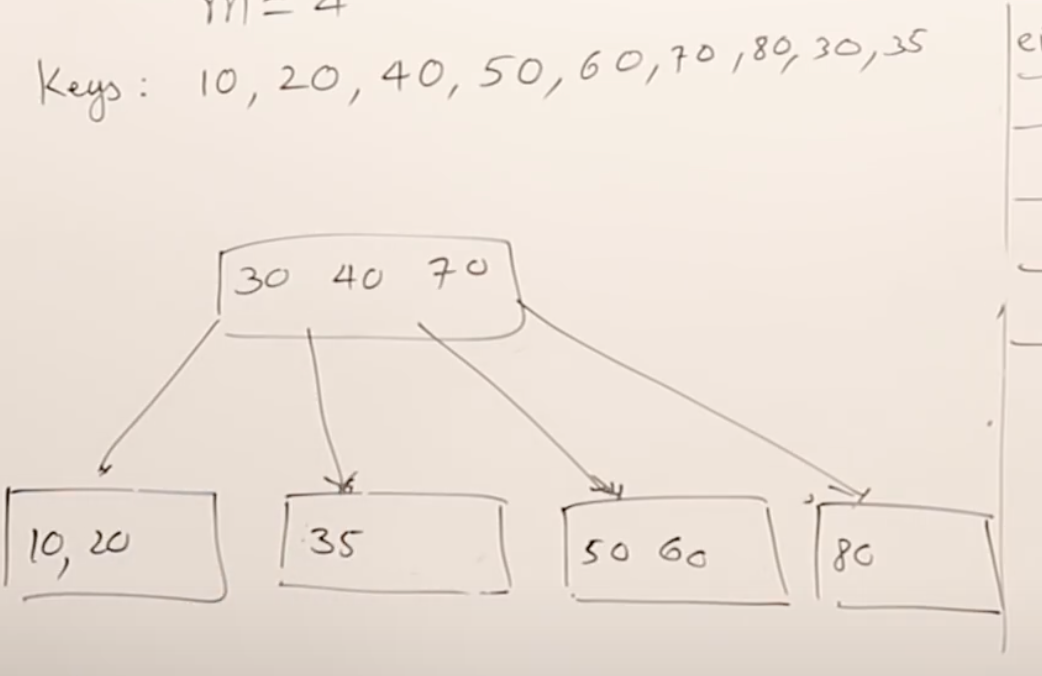 m = 4
Keys: 10, 20, 40, 50, 60, 70, 80, 30, 35
30 40 70
10, 20
35
50 60
80